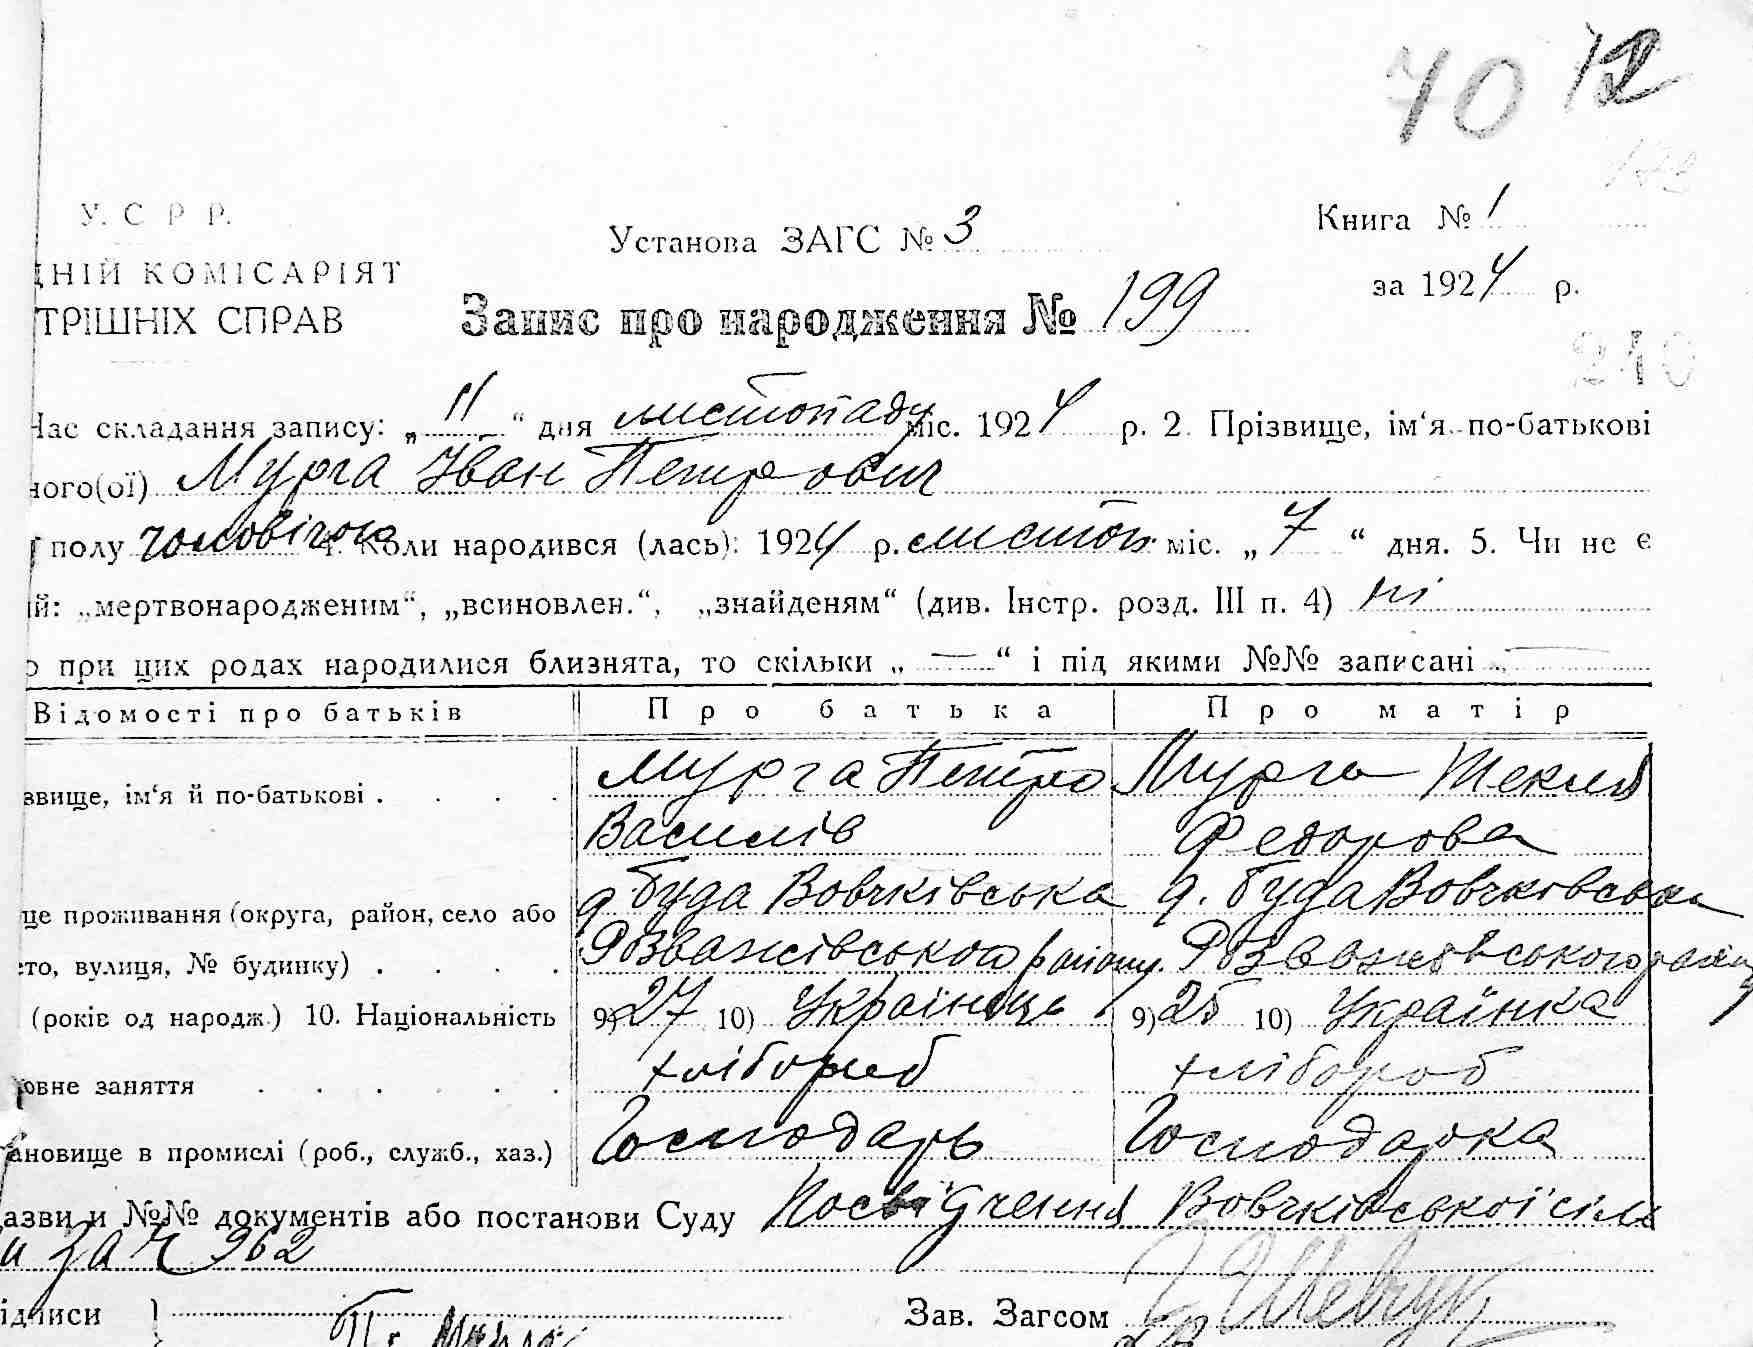 70 12
173
У. С Р Р.
Установа ЗАГС № 3
Книга № 1
ДНІЙ КОМІСАРІЯТ
за 1924 р.
ТРІШНІХ СПРАВ
Запис про народження № 199
240
Час складання запису: „ 11 “ дня листопаду міс. 1924 р. 2. Прізвище, ім‘я по-батькові
ного(ої) Мурга Іван Петрович
полу чоловічого 4. Коли народився (лась): 1924 р. листоп. міс. „ 7 “ дня. 5. Чи не є
ій: „мертвонародженим“, „всиновлен.“, „знайденям“ (див. Інстр. розд. III п. 4) ні
о при цих родах народилися близнята, то скільки „ — “ і під якими №№ записані „ —
Відомості про батьків Про батька Про матір
звище, ім‘я й по-батькові . . . . Мурга Петро Мурга Текля
Василів Федорова
це проживання (округа, район, село або д. Буда Вовчківська д. Буда Вовчковська
сто, вулиця, № будинку) . . . . Розважівського району. Розважовського району
(років од народж.) 10. Національність 9) 27 10) Українець 9) 25 10) Українка
овне заняття . . . . . . хлібороб хлібороб
ановище в промислі (роб., служб., хаз.) Господарь Господарка
азви и №№ документів або постанови Суду Посвідчення Вовчківської сіль
и за ч 962
ідписи } П. Мурга Зав. Загсом Шевчук